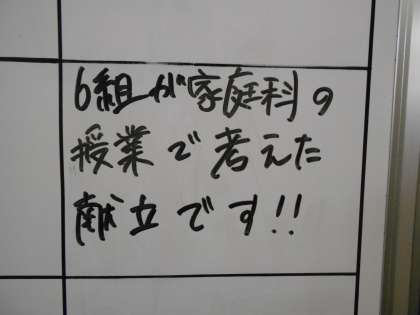 6組が家庭科の
授業で考えた
献立です!!